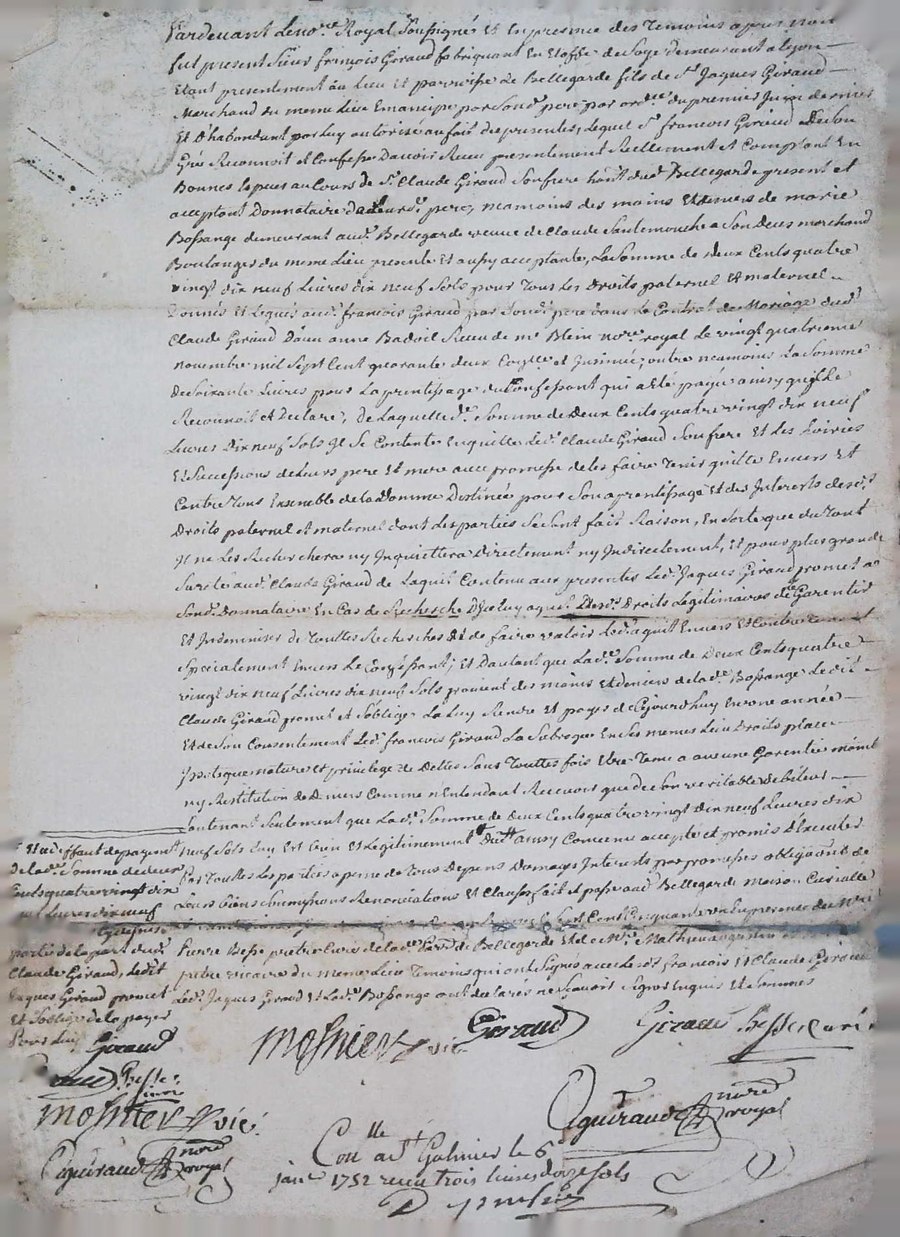 Pardevant Le no.re Royal Soussigné Et En presence des Temoins apres nom
fut present Sieur francois Giraud fabriquant En Etoffe de Soye demeurant a Lyon
Etant presentement au Lieu Et parroisse de Bellegarde fils de S.r Jaques Giraud
Marchand du meme Lieu Emancipé par Son d. pere par ord.ce du premier Juin dernier
Et D'habondant par Luy autorisé au fait des presentes, Lequel S.r francois Giraud De Son
Gré Reconnoit et Confesse D'avoir Receu presentement Reellement et Comptant En
Bonnes Especes au Cours de S.r Claude Giraud Son frere hab.t dud. Bellegarde present et
acceptant Donnataire de leur d. pere, neamoins des mains Et deniers de marie
Bossange demeurant aud. Bellegarde veuve de Claude Santemouche a Son Deces marchand
Boulanger du meme Lieu presente Et aussy acceptante, La Somme de deux Cents quatre
vingt dix neuf Livres dix neuf Sols pour Tous Les Droits paternel Et maternel
Donnés Et Legués aud. francois Giraud par Son d. pere dans Le Contrat de Mariage dud.
Claude Giraud D'avec anne Badoil Receu de m.e Blein no.re royal Le vingt quatrieme
novembre mil Sept Cent quarante deux et Insinué; outre neamoins La Somme
De Soixante Livres pour Laprentissage du Confessant qui a Eté payée ainsy qu'il Le
Reconnoit et Declare; de Laquelle d. Somme de Deux Cents quatre vingt dix neuf
Livres Dix neuf Sols Il Se Contente En quitte Led. Claude Giraud Son frere Et Les hoiries
Et Successions de Leurs pere Et mere avec promesse de les faire Tenir quitte Envers Et
Contre Tous Ensemble de la Somme Destinée pour Son aprentissage Et des Interests desd.
Droits paternel et maternel dont Les parties Se Sont fait Raison, En Sorte que du Tout
Il ne Les Recherchera ny Inquiettera Directement ny Indirectement, Et pour plus grande
Sureté aud. Claude Giraud de Laquit Contenu aux presentes Led. Jaques Giraud promet a
Son d. Donnataire En Cas de Recherche Desd. Droits Legitimaires de Le Garentir
Et Indemniser de Touttes Recherches Et de faire valoir Led. aquit Envers Et Contre Tous Et
Specialement Envers Le Confessant; Et D'autant que Lad. Somme de Deux Cents quatre
vingt dix neuf Livres dix neuf Sols provient des mains Et deniers de lad. Bossange Led.
Claude Giraud promet et S'oblige La Luy Rendre Et payer de Cejourdhuy En une année
Et de Son Consentement Led. francois Giraud La Subroge En Ses memes Lieu Droits place
Ipoteque nature et privilege de Dettes Sans Touttes fois Etre Tenu a aucune Garentie maint.
ny Restitution de Deniers Comme n'Entendant Recevoir que de Son veritable debiteur
Soutenant Seulement que Lad. Somme de Deux Cents quatre vingt Dix neuf Livres dix
neuf Sols Luy Est bien Et Legitimement Due ainsy Convenu accepté et promis D'Executer
Par Touttes Les parties a peine de Tous Depens Domages Interests par promesses obligations de
Leurs biens Soumissions Renonciations Et Clauses, fait et passé aud. Bellegarde Maison Curialle
Sept Cent Cinquante un En presence de M.re
Pierre Besse pretre Curé de lad. par.sse de Bellegarde Et de M.re Mathieu
pretre vicaire du meme Lieu Temoins qui ont Signés avec Lesd. francois Et Claude Giraud
Led. Jaques Giraud Et Lad. Bossange ont declarés ne Scavoir Signer Enquis Et Sommés
Et au deffaut de payem.t
De lad. Somme de deux
Cents quatre vingt dix
neuf Livres dix neuf
Sols
partie de la part dud.
Claude Giraud, Ledit
Jaques Giraud promet
Et S'oblige de la payer
Pour Luy
Giraud
Mosnier vic.
Giraud
Giraud Besse Curé
Giraud Besse
Curé
Mosnier vic.
Aguiraud no.re royal
Aguiraud no.re
royal
Con.lle a S.t Galmier le 6.e
janv.r 1752 receu trois livres douze sols